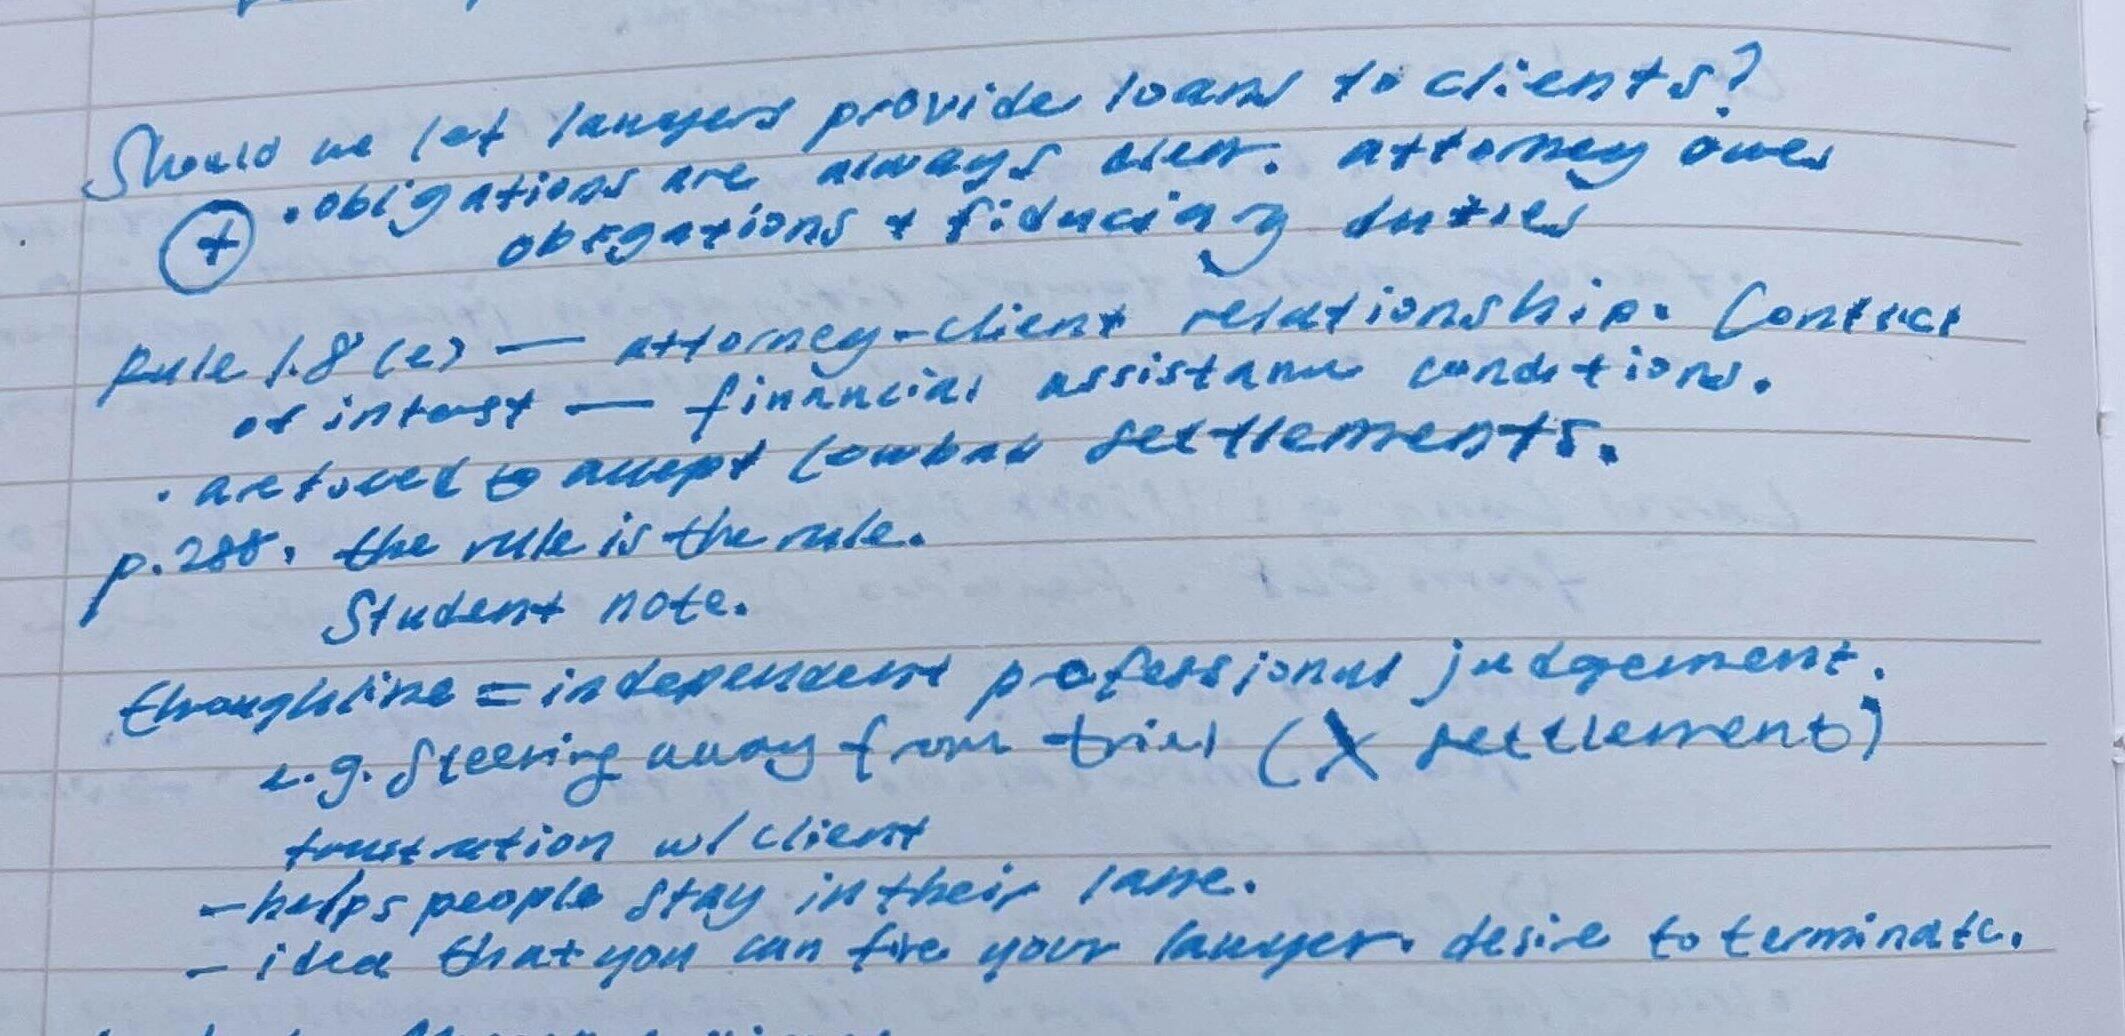 Should we let lawyers provide loans to clients?
+ • obligations are always clear. attorney owes
obligations + fiduciary duties
Rule 1.8 (e) — attorney-client relationship. Contract
of interst — financial assistance conditions.
• are forced to accept lowball settlements.
p. 288. the rule is the rule.
Student note.
throughline = independent professional judgement.
e.g. Steering away from trial ( settlement)
frustration w/ client
– helps people stay in their lane.
– idea that you can fire your lawyer. desire to terminate.